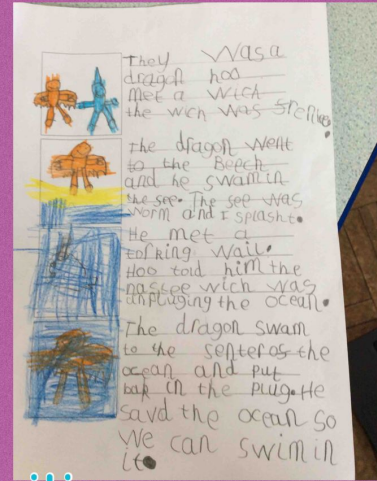 They was a
dragon hoo
met a wich
the wich was
The dragon went
to the Beech
and he swam in
the see. The see was
worm and I splasht.
He met a
torking wail.
Hoo told him the
nascee wich was
unpluging the ocean.
The dragon swam
to the senter of the
ocean and put
bak in the plug. He
savd the ocean so
we can swim in
it.